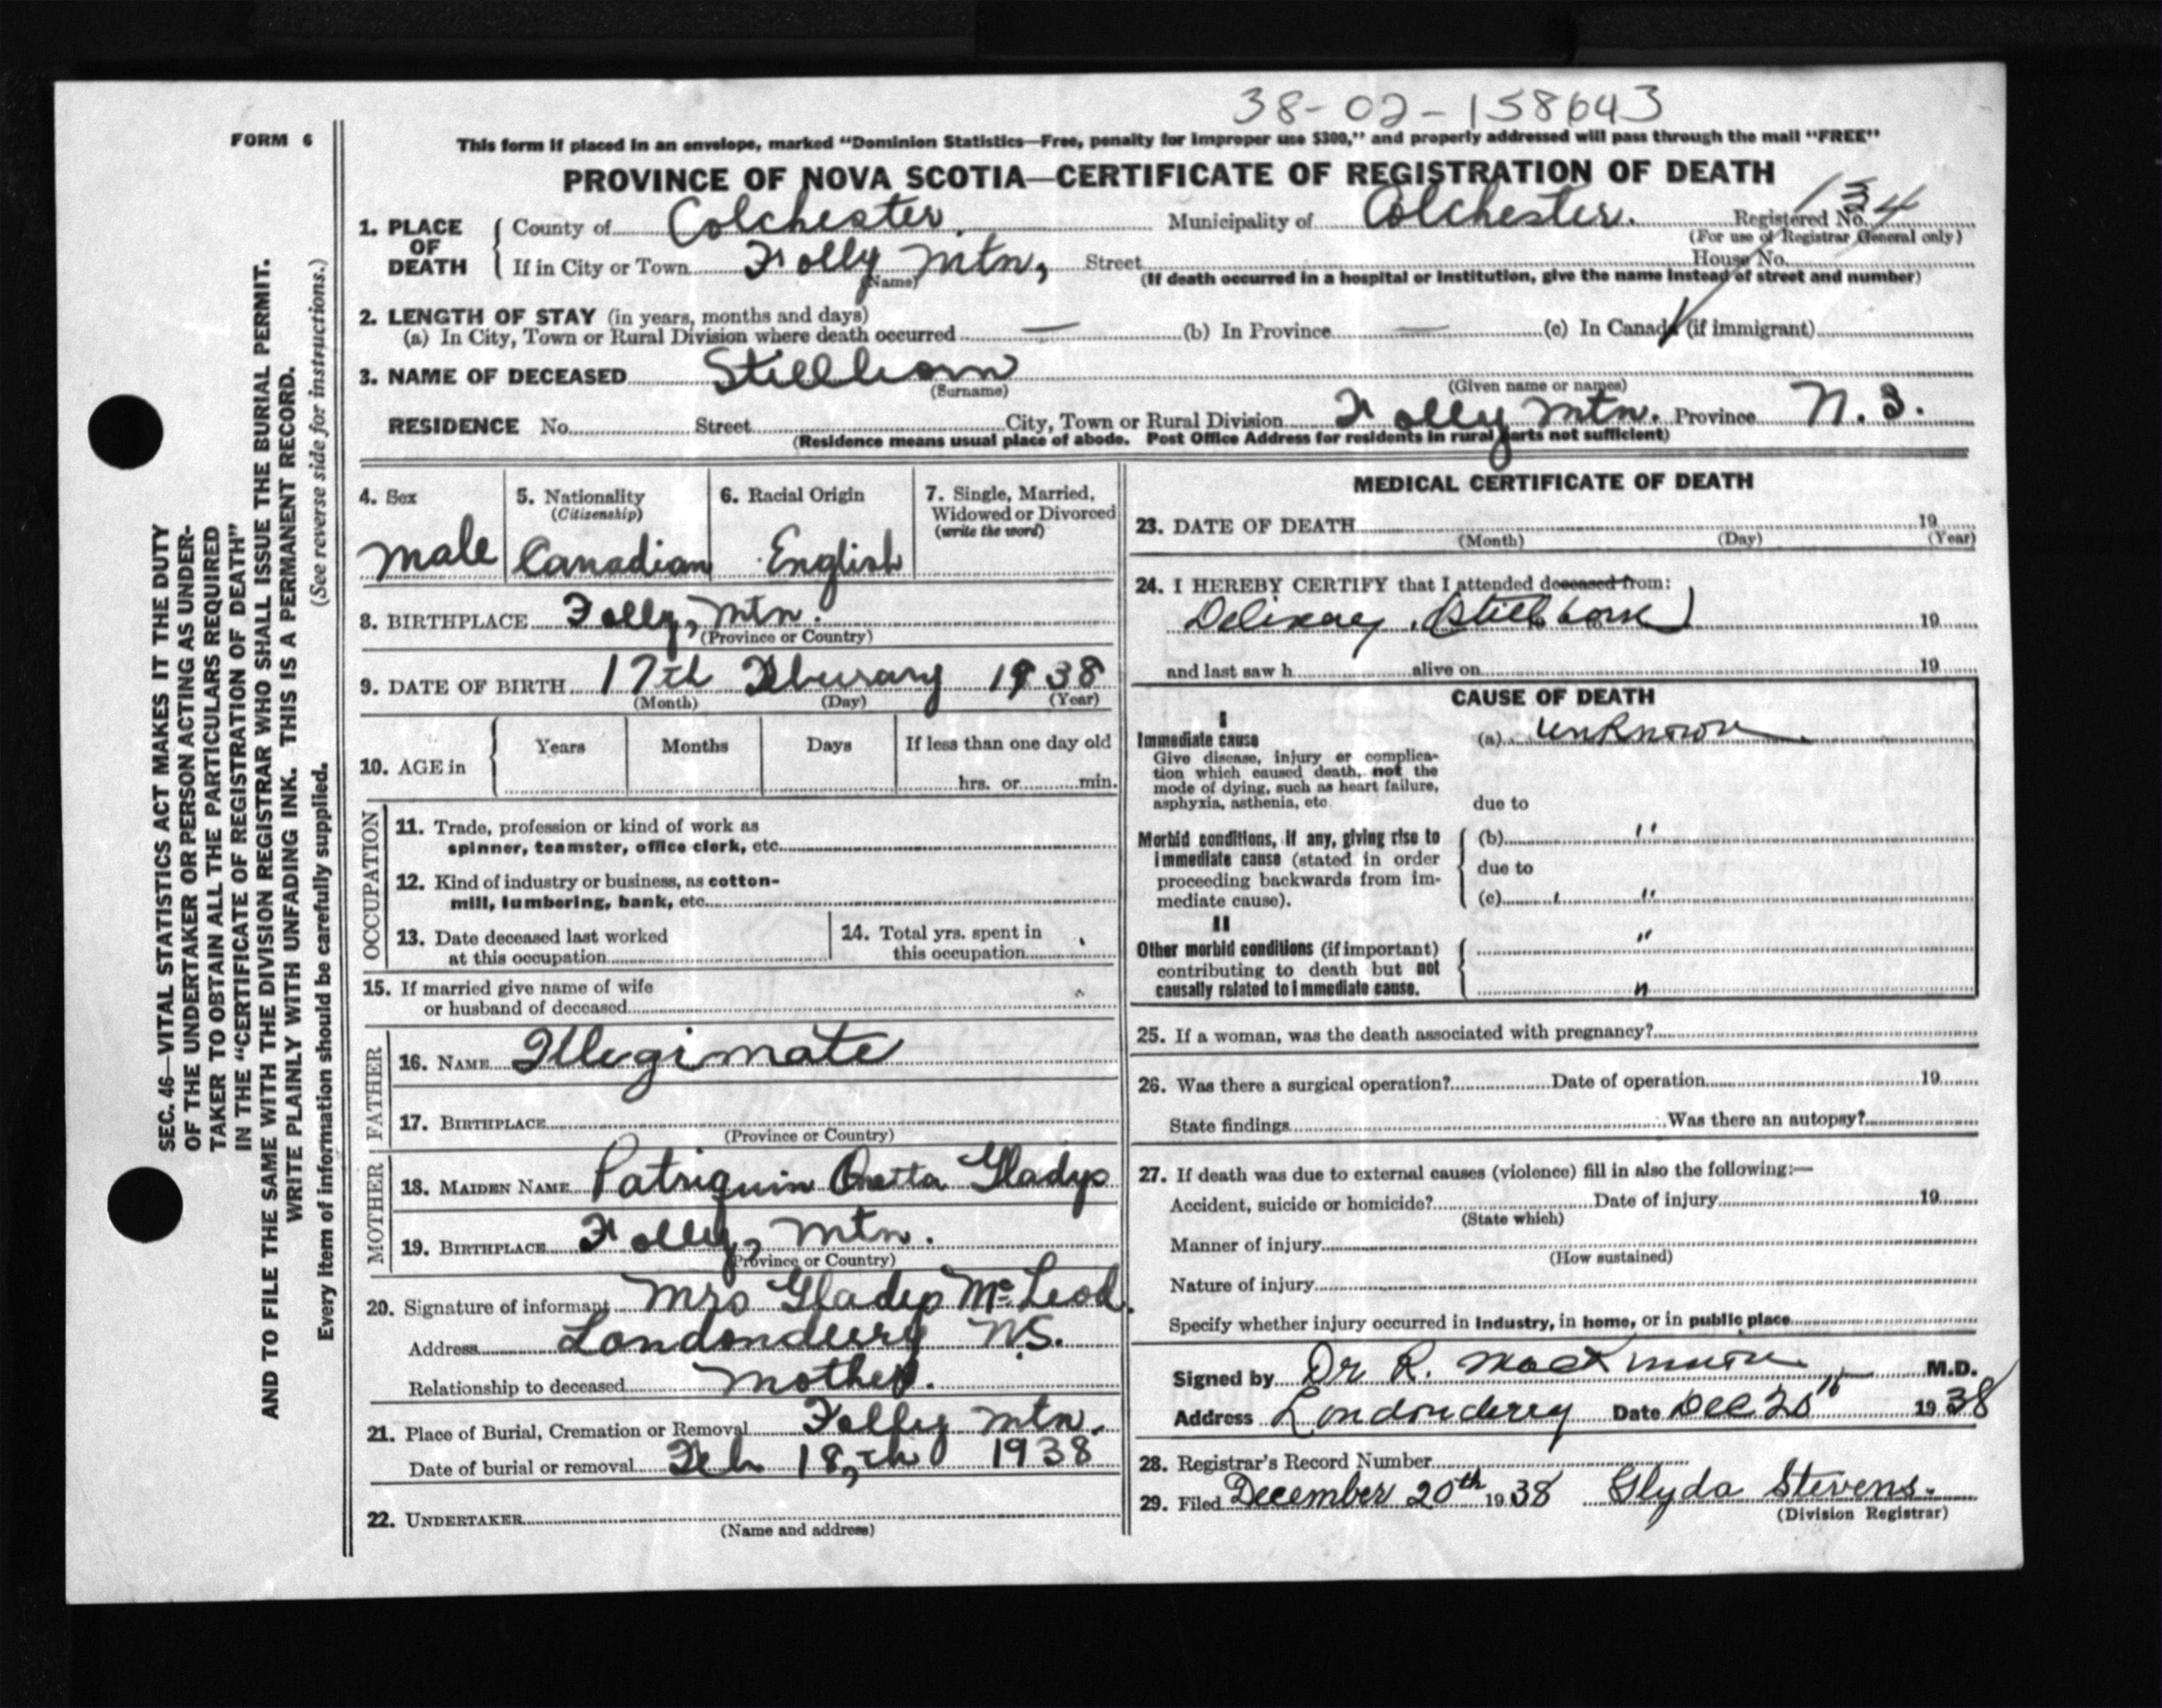 38-02-158643
FORM 6
This form if placed in an envelope, marked "Dominion Statistics—Free, penalty for improper use $300," and properly addressed will pass through the mail "FREE"
PROVINCE OF NOVA SCOTIA—CERTIFICATE OF REGISTRATION OF DEATH
1. PLACE OF DEATH { County of Colchester. Municipality of Colchester. Registered No. 134
(For use of Registrar General only)
If in City or Town Folly Mtn, Street House No.
(Name) (If death occurred in a hospital or institution, give the name instead of street and number)
2. LENGTH OF STAY (in years, months and days)
(a) In City, Town or Rural Division where death occurred — (b) In Province — (c) In Canada (if immigrant)
3. NAME OF DECEASED Stillborn
(Surname) (Given name or names)
RESIDENCE No. Street City, Town or Rural Division Folly Mtn. Province N.S.
(Residence means usual place of abode. Post Office Address for residents in rural parts not sufficient)
4. Sex
male
5. Nationality
(Citizenship)
Canadian
6. Racial Origin
English
7. Single, Married,
Widowed or Divorced
(write the word)
8. BIRTHPLACE Folly, Mtn.
(Province or Country)
9. DATE OF BIRTH 17th Feburary 1938
(Month) (Day) (Year)
10. AGE in { Years Months Days If less than one day old
hrs. or min.
OCCUPATION
11. Trade, profession or kind of work as
spinner, teamster, office clerk, etc.
12. Kind of industry or business, as cotton-
mill, lumbering, bank, etc.
13. Date deceased last worked
at this occupation
14. Total yrs. spent in
this occupation
15. If married give name of wife
or husband of deceased
FATHER
16. NAME Illegimate
17. BIRTHPLACE
(Province or Country)
MOTHER
18. MAIDEN NAME Patriquin Gladys
19. BIRTHPLACE Folly, Mtn.
(Province or Country)
20. Signature of informant Mrs Gladys McLeod.
Address Londonderry N.S.
Relationship to deceased Mother.
21. Place of Burial, Cremation or Removal Folly Mtn.
Date of burial or removal Feb 18,th 1938
22. UNDERTAKER
(Name and address)
MEDICAL CERTIFICATE OF DEATH
23. DATE OF DEATH 19
(Month) (Day) (Year)
24. I HEREBY CERTIFY that I attended deceased from:
Delivery (Stillborn) 19
and last saw h alive on 19
CAUSE OF DEATH
I
Immediate cause (a) unknown
Give disease, injury or complica-
tion which caused death, not the
mode of dying, such as heart failure,
asphyxia, asthenia, etc due to
Morbid conditions, if any, giving rise to
immediate cause (stated in order
proceeding backwards from im-
mediate cause).
(b) "
due to
(c) "
II
Other morbid conditions (if important)
contributing to death but not
causally related to immediate cause.
"
"
25. If a woman, was the death associated with pregnancy?
26. Was there a surgical operation? Date of operation 19
State findings Was there an autopsy?
27. If death was due to external causes (violence) fill in also the following:—
Accident, suicide or homicide? Date of injury 19
(State which)
Manner of injury
(How sustained)
Nature of injury
Specify whether injury occurred in industry, in home, or in public place
Signed by Dr R. M.D.
Address Londonderry Date Dec 20th 1938
28. Registrar's Record Number
29. Filed December 20th 1938 Glyda Stevens.
(Division Registrar)
SEC. 46—VITAL STATISTICS ACT MAKES IT THE DUTY
OF THE UNDERTAKER OR PERSON ACTING AS UNDER-
TAKER TO OBTAIN ALL THE PARTICULARS REQUIRED
IN THE "CERTIFICATE OF REGISTRATION OF DEATH"
AND TO FILE THE SAME WITH THE DIVISION REGISTRAR WHO SHALL ISSUE THE BURIAL PERMIT.
WRITE PLAINLY WITH UNFADING INK. THIS IS A PERMANENT RECORD.
(See reverse side for instructions.)
Every item of information should be carefully supplied.